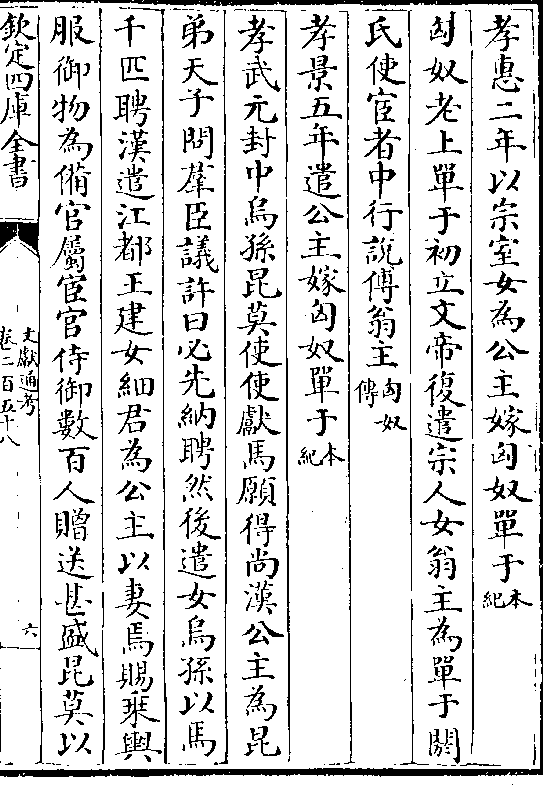 孝惠二年以宗室女為公主嫁匈奴單于本紀
匈奴老上單于初立文帝復遣宗人女翁主為單于閼
氏使宦者中行說傅翁主匈奴傳
孝景五年遣公主嫁匈奴單于本紀
孝武元封中烏孫昆莫使使獻馬願得尚漢公主為昆
弟天子問羣臣議許曰必先納聘然後遣女烏孫以馬
千匹聘漢遣江都王建女細君為公主以妻焉賜乘輿
服御物為備官屬宦官侍御數百人贈送甚盛昆莫以
欽定四庫全書
文獻通考
卷二百五十八
六